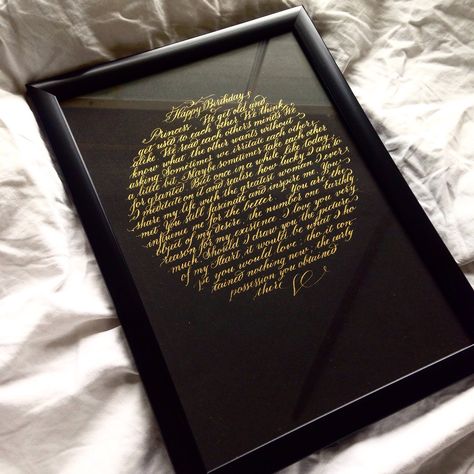 Happy Birthday
Princess We get old and
get used to each other. We think
alike. We read each others minds. We
know what the other wants without
asking. Sometimes we irritate each other a
little bit. Maybe sometimes take each other
for granted. But once in a while, like today,
I meditate on it and realise how lucky I am to
share my life with the greatest woman I ever
met. You still fascinate and inspire me. You
influence me for the better. You are the
object of my desire, the number one Earthly
reason for my existence. I love you very
much. Should I draw you the picture
of my Heart it would be what I ho
pe you would love; tho it con
tained nothing new; the early
possession you obtained
there